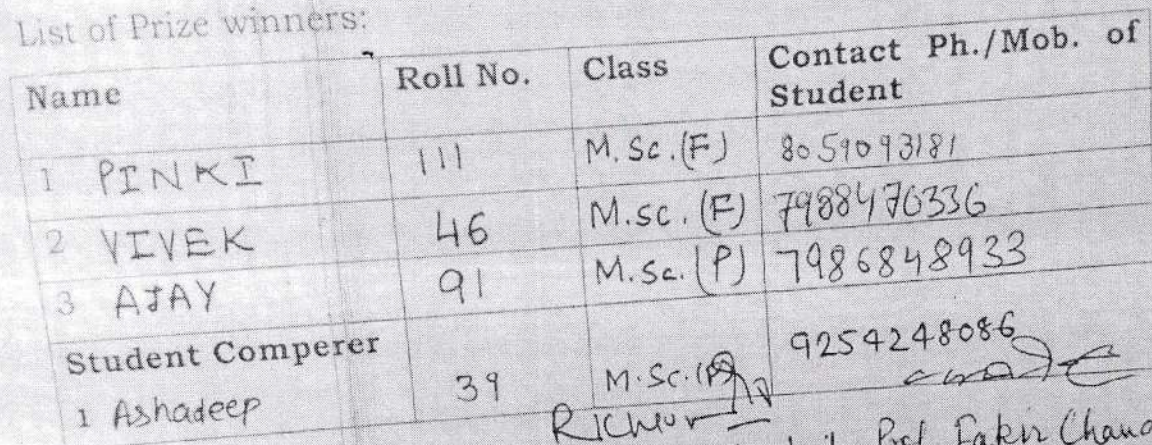 List of Prize winners:
Name Roll No. Class Contact Ph./Mob. of
Student
1 PINKI 111 M.Sc.(F) 8059093181
2 VIVEK 46 M.sc.(F) 7988470336
3 AJAY 91 M.Sc.(P) 7986848933
Student Comperer
1 Ashadeep 39 M.Sc.(P) 9254248086
Prof. Fakir Chand